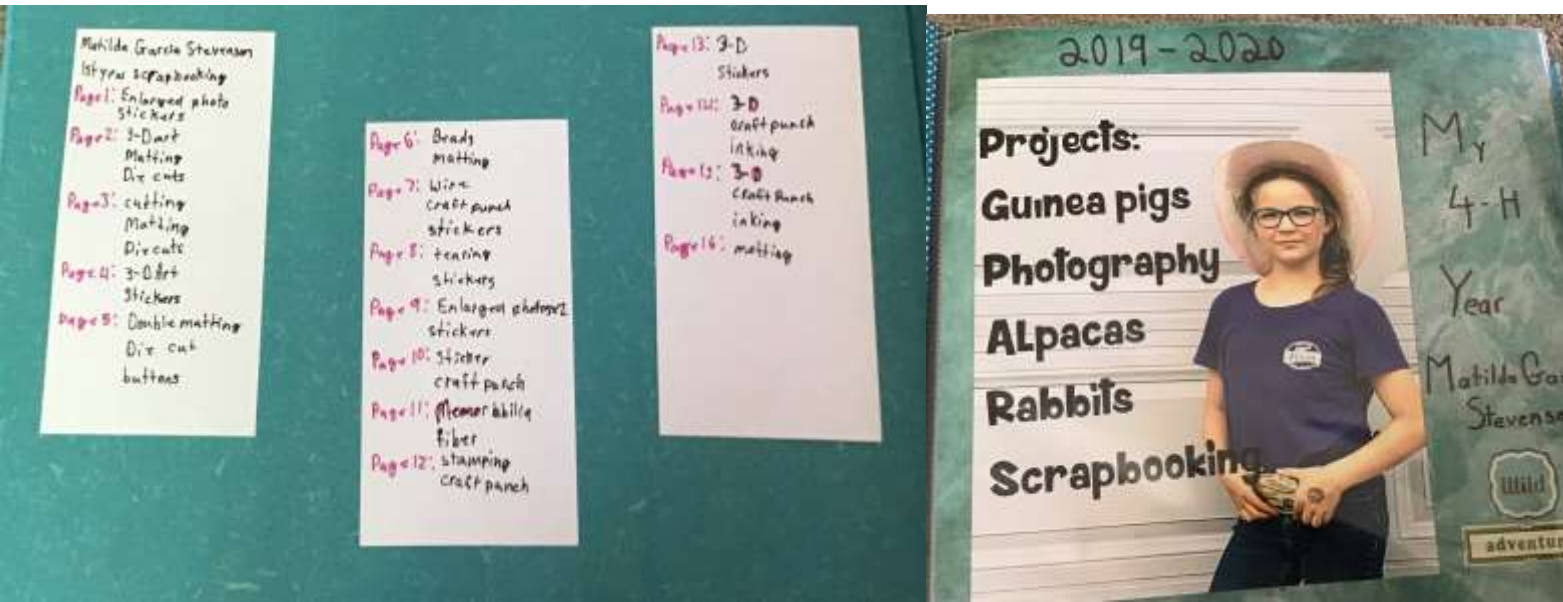 Matilda Garcia Stevenson
1st year scrapbooking
Page 1: Enlarged photo
Stickers
Page 2: 3-D art
Matting
Die cuts
Page 3: cutting
Matting
Die cuts
Page 4: 3-D Art
Stickers
Page 5: Double matting
Die cut
buttons
Page 6: Beads
matting
Page 7: Wire
craft punch
stickers
Page 8: tearing
stickers
Page 9: Enlarged
stickers
Page 10: Sticker
craft punch
Page 11:
fiber
Page 12: stamping
craft punch
Page 13: 3-D
Stickers
Page 14: 3-D
craft punch
inking
Page 15: 3-D
craft punch
inking
Page 16: matting
2019-2020
Projects:
Guinea pigs
Photography
ALpacas
Rabbits
Scrapbooking
My
4-H
Year
Matilda Ga
Stevenso
Wild
adventur